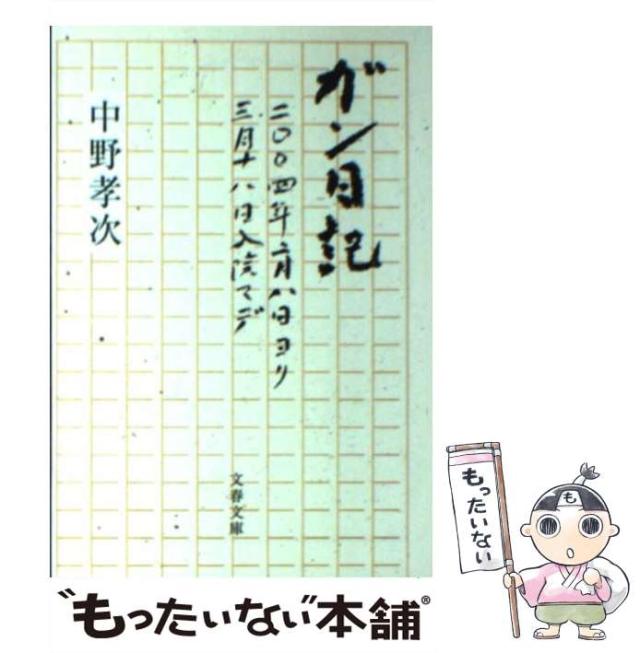 ガン日記
二〇〇四年二月八日ヨリ
三月十八日入院マデ
中野孝次
文春文庫
もったいない
も
"もったいない"本舗®